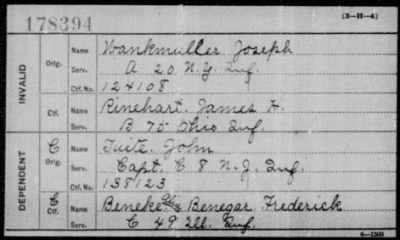 178394
(3-H-4)
INVALID
Orig.
Name Wankmuller Joseph
Serv. A 20 N.Y. Inf.
Ctf. No. 124108
Ctf.
Name Rinehart, James H.
Serv. B 75 Ohio Inf.
DEPENDENT
C
Orig.
Name Tuite, John
Serv. Capt. C 8 N.J. Inf.
Ctf. No. 138123
C
Ctf.
Name Beneke alias Benegar Frederick
Serv. C 49 Ill. Inf.